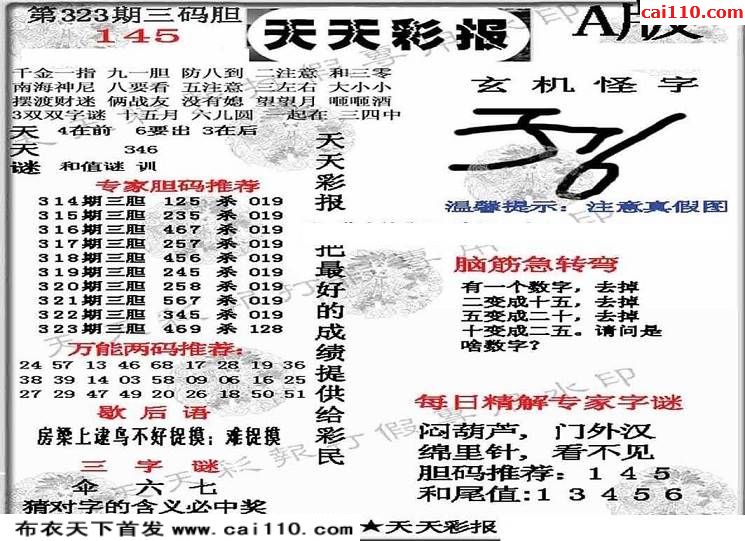 第323期三码胆
145
天天彩报
A版
cai110.com
千金一指 九一胆 防八到 二注意 和三零
南海神尼 八要看 五注意 三左右 大小小
摆渡财迷 俩战友 没有媳 望望月 咂咂酒
3双双字谜 十五月 六儿圆 一起在 三四中
天 4在前 6要出 3在后
天 346
谜 和值谜 训
专家胆码推荐
314期三胆 125 杀 019
315期三胆 235 杀 019
316期三胆 467 杀 019
317期三胆 257 杀 019
318期三胆 456 杀 019
319期三胆 245 杀 019
320期三胆 258 杀 019
321期三胆 567 杀 019
322期三胆 345 杀 019
323期三胆 469 杀 128
万能两码推荐:
24 57 13 46 68 17 28 19 36
38 39 14 03 58 09 06 16 25
27 29 47 49 20 26 18 50 51
歇后语
房梁上逮鸟不好捉摸；难捉摸
三字谜
伞 六 七
猜对字的含义必中奖
天天彩报
把最好的成绩提供给彩民
玄机怪字
温馨提示：注意真假图
脑筋急转弯
有一个数字，去掉
二变成十五，去掉
五变成二十，去掉
十变成二五。请问是
啥数字？
每日精解专家字谜
闷葫芦，门外汉
绵里针，看不见
胆码推荐：1 4 5
和尾值:1 3 4 5 6
布衣天下首发 www.cai110.com ★天天彩报